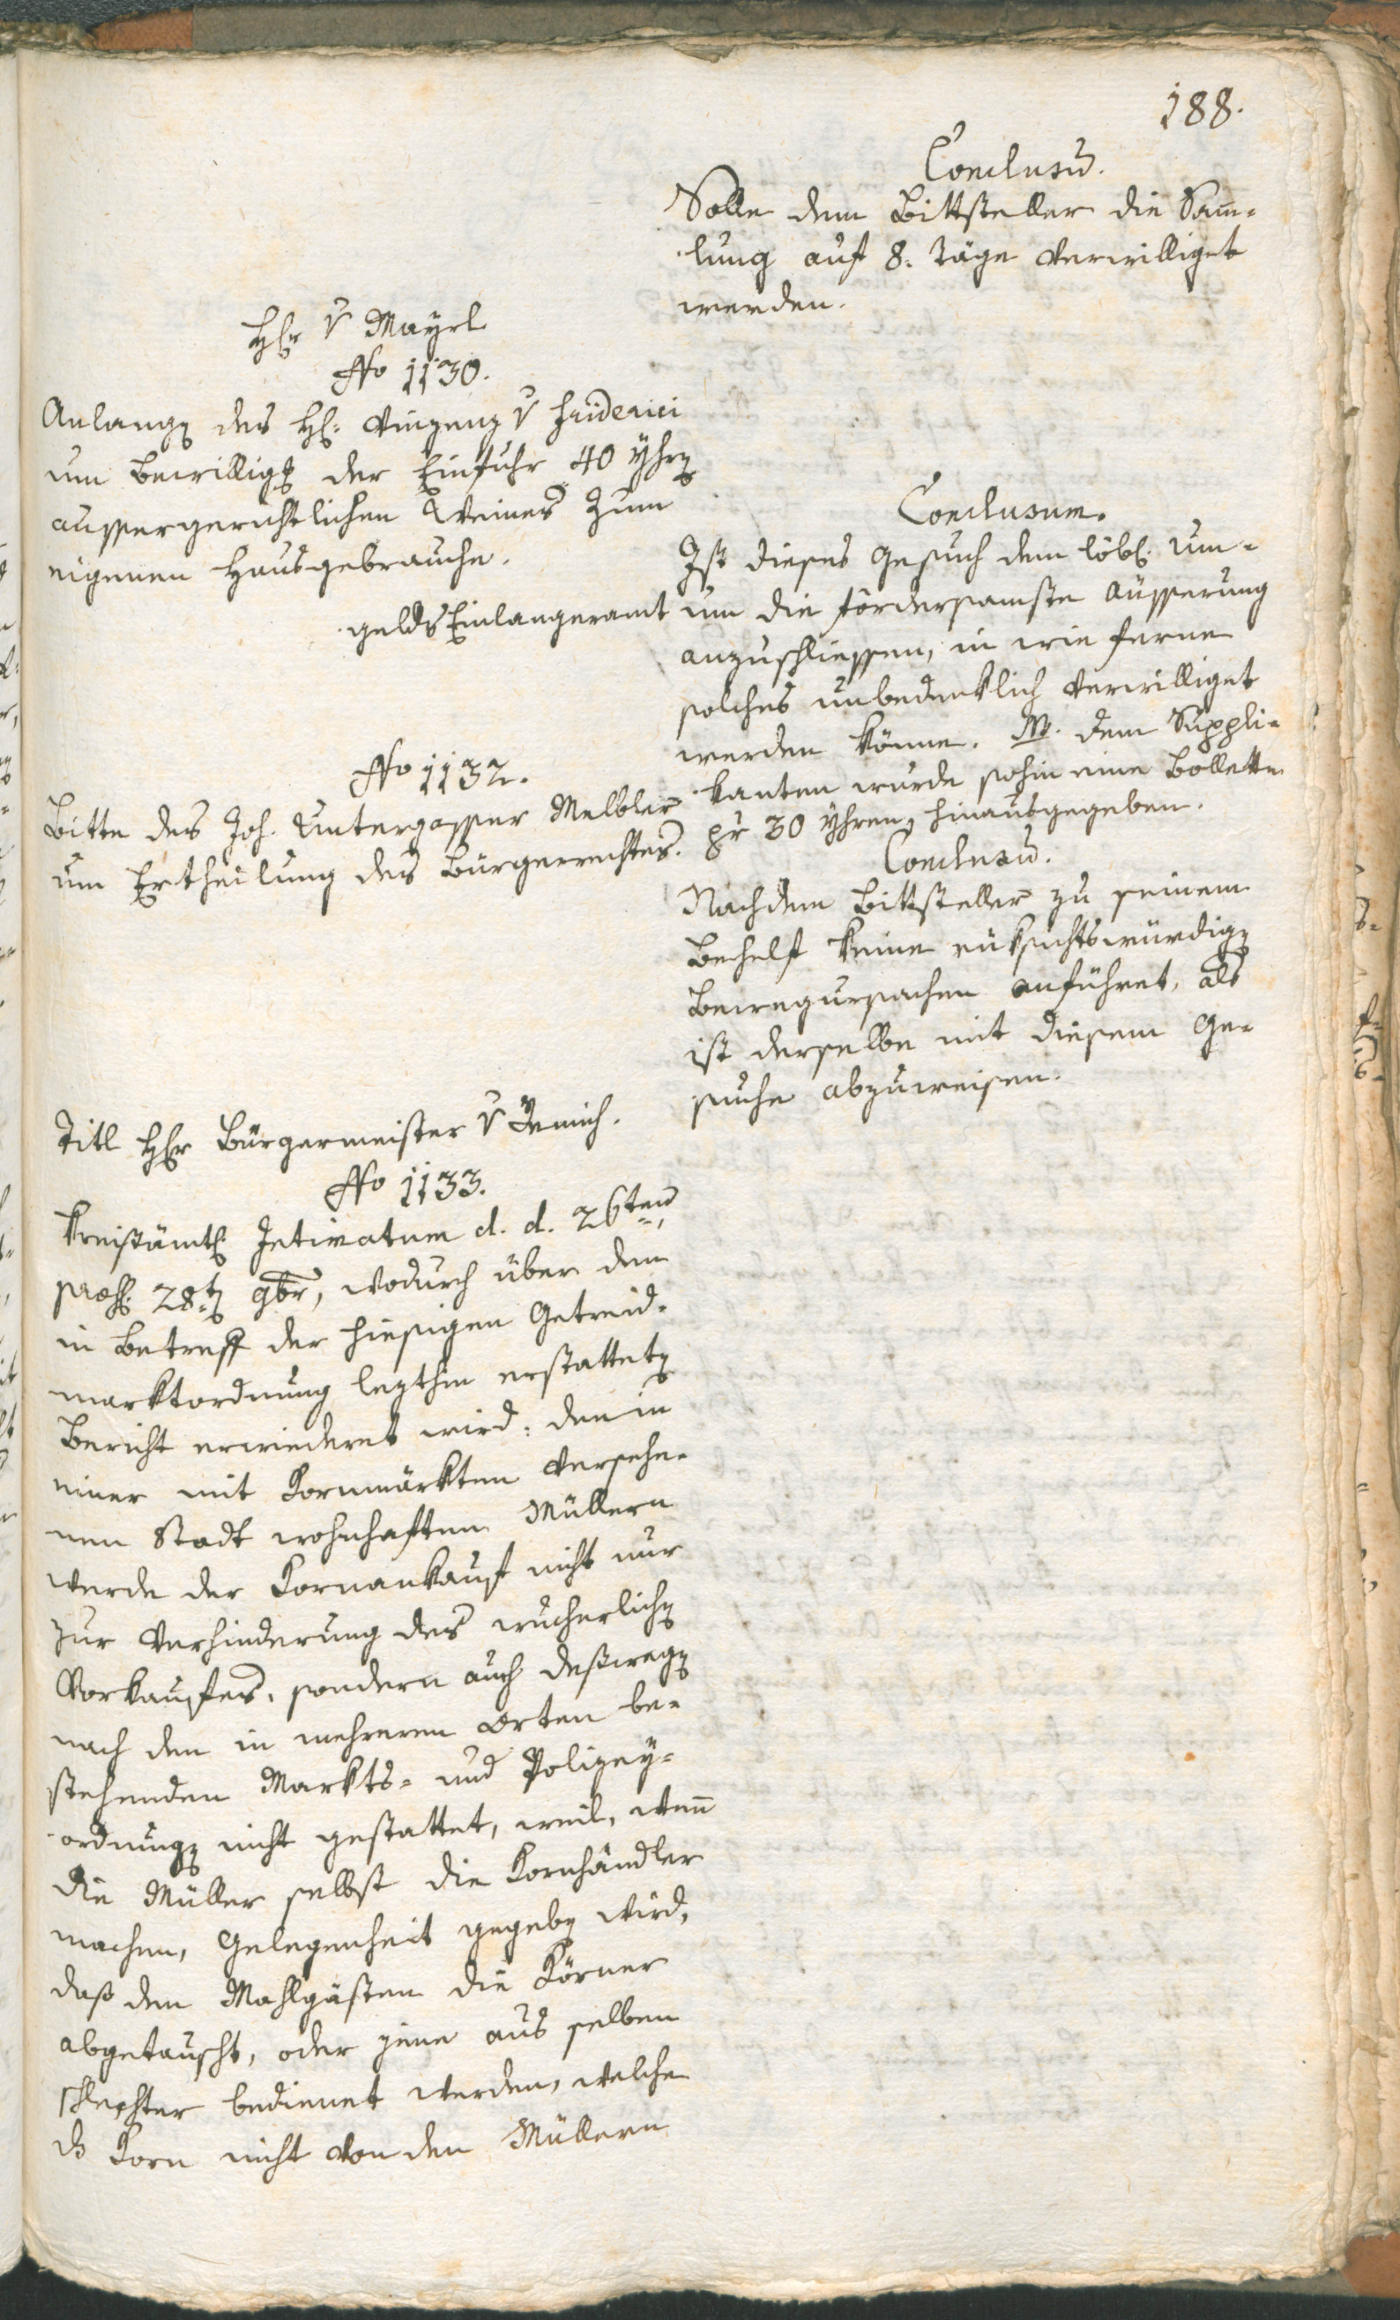 188.
Conclusū.
Solle dem Bittsteller die Sam̄-
lung auf 8. Täge verwilliget
werden.
Hr v Mayrl
Nro 1130.
Anlangen des H: Vinzenz v Friderici
um Bewilligg der Einfuhr 40 Yhrn
aussergerichtlichen Weines zum
eigenen Hausgebrauche.
Conclusum.
Ist dieses Gesuch dem löbl. Um-
gelds Einlangeramt um die fördersamste Äusserung
anzuschliessen, in wie ferne
solches unbedenklich verwilliget
werden könne. NB. dem Suppli-
kanten wurde sohin eine Bollette
pr 30 Yhren hinausgegeben.
Nro 1132.
Bitte des Joh. Untergasser Melbler
um Ertheilung des Bürgerrechtes.
Conclusū.
Nachdem Bittsteller zu seinem
Behelf keine rüksichtswürdign
Bewegursachen anführet, als
ist derselbe mit diesem Ge-
suche abzuweisen.
Titl Hr Bürgermeister v
Nro 1133.
Kreisämtl Intimatum d. d. 26ten
præs. 28tn 9br, wodurch über den
in Betreff der hiesigen Getreid-
marktordnung lezthin erstattetn
Bericht erwiederet wird: den in
einer mit Kornmärkten versehe-
nen Stadt wohnhaften Müllern
werde der Kornankauf nicht nur
zur Verhinderung des wucherlichn
Vorkaufes, sondern auch deßwegn
nach den in mehreren Orten be-
stehenden Markts- und Polizey-
ordnungn nicht gestattet, weil, wen̄
die Müller selbst die Kornhändler
machen, Gelegenheit gegebn wird,
daß den Mahlgästen die Körner
abgetauscht, oder jene aus selben
schlechter bedienet werden, welche
ds Korn nicht von den Müllern